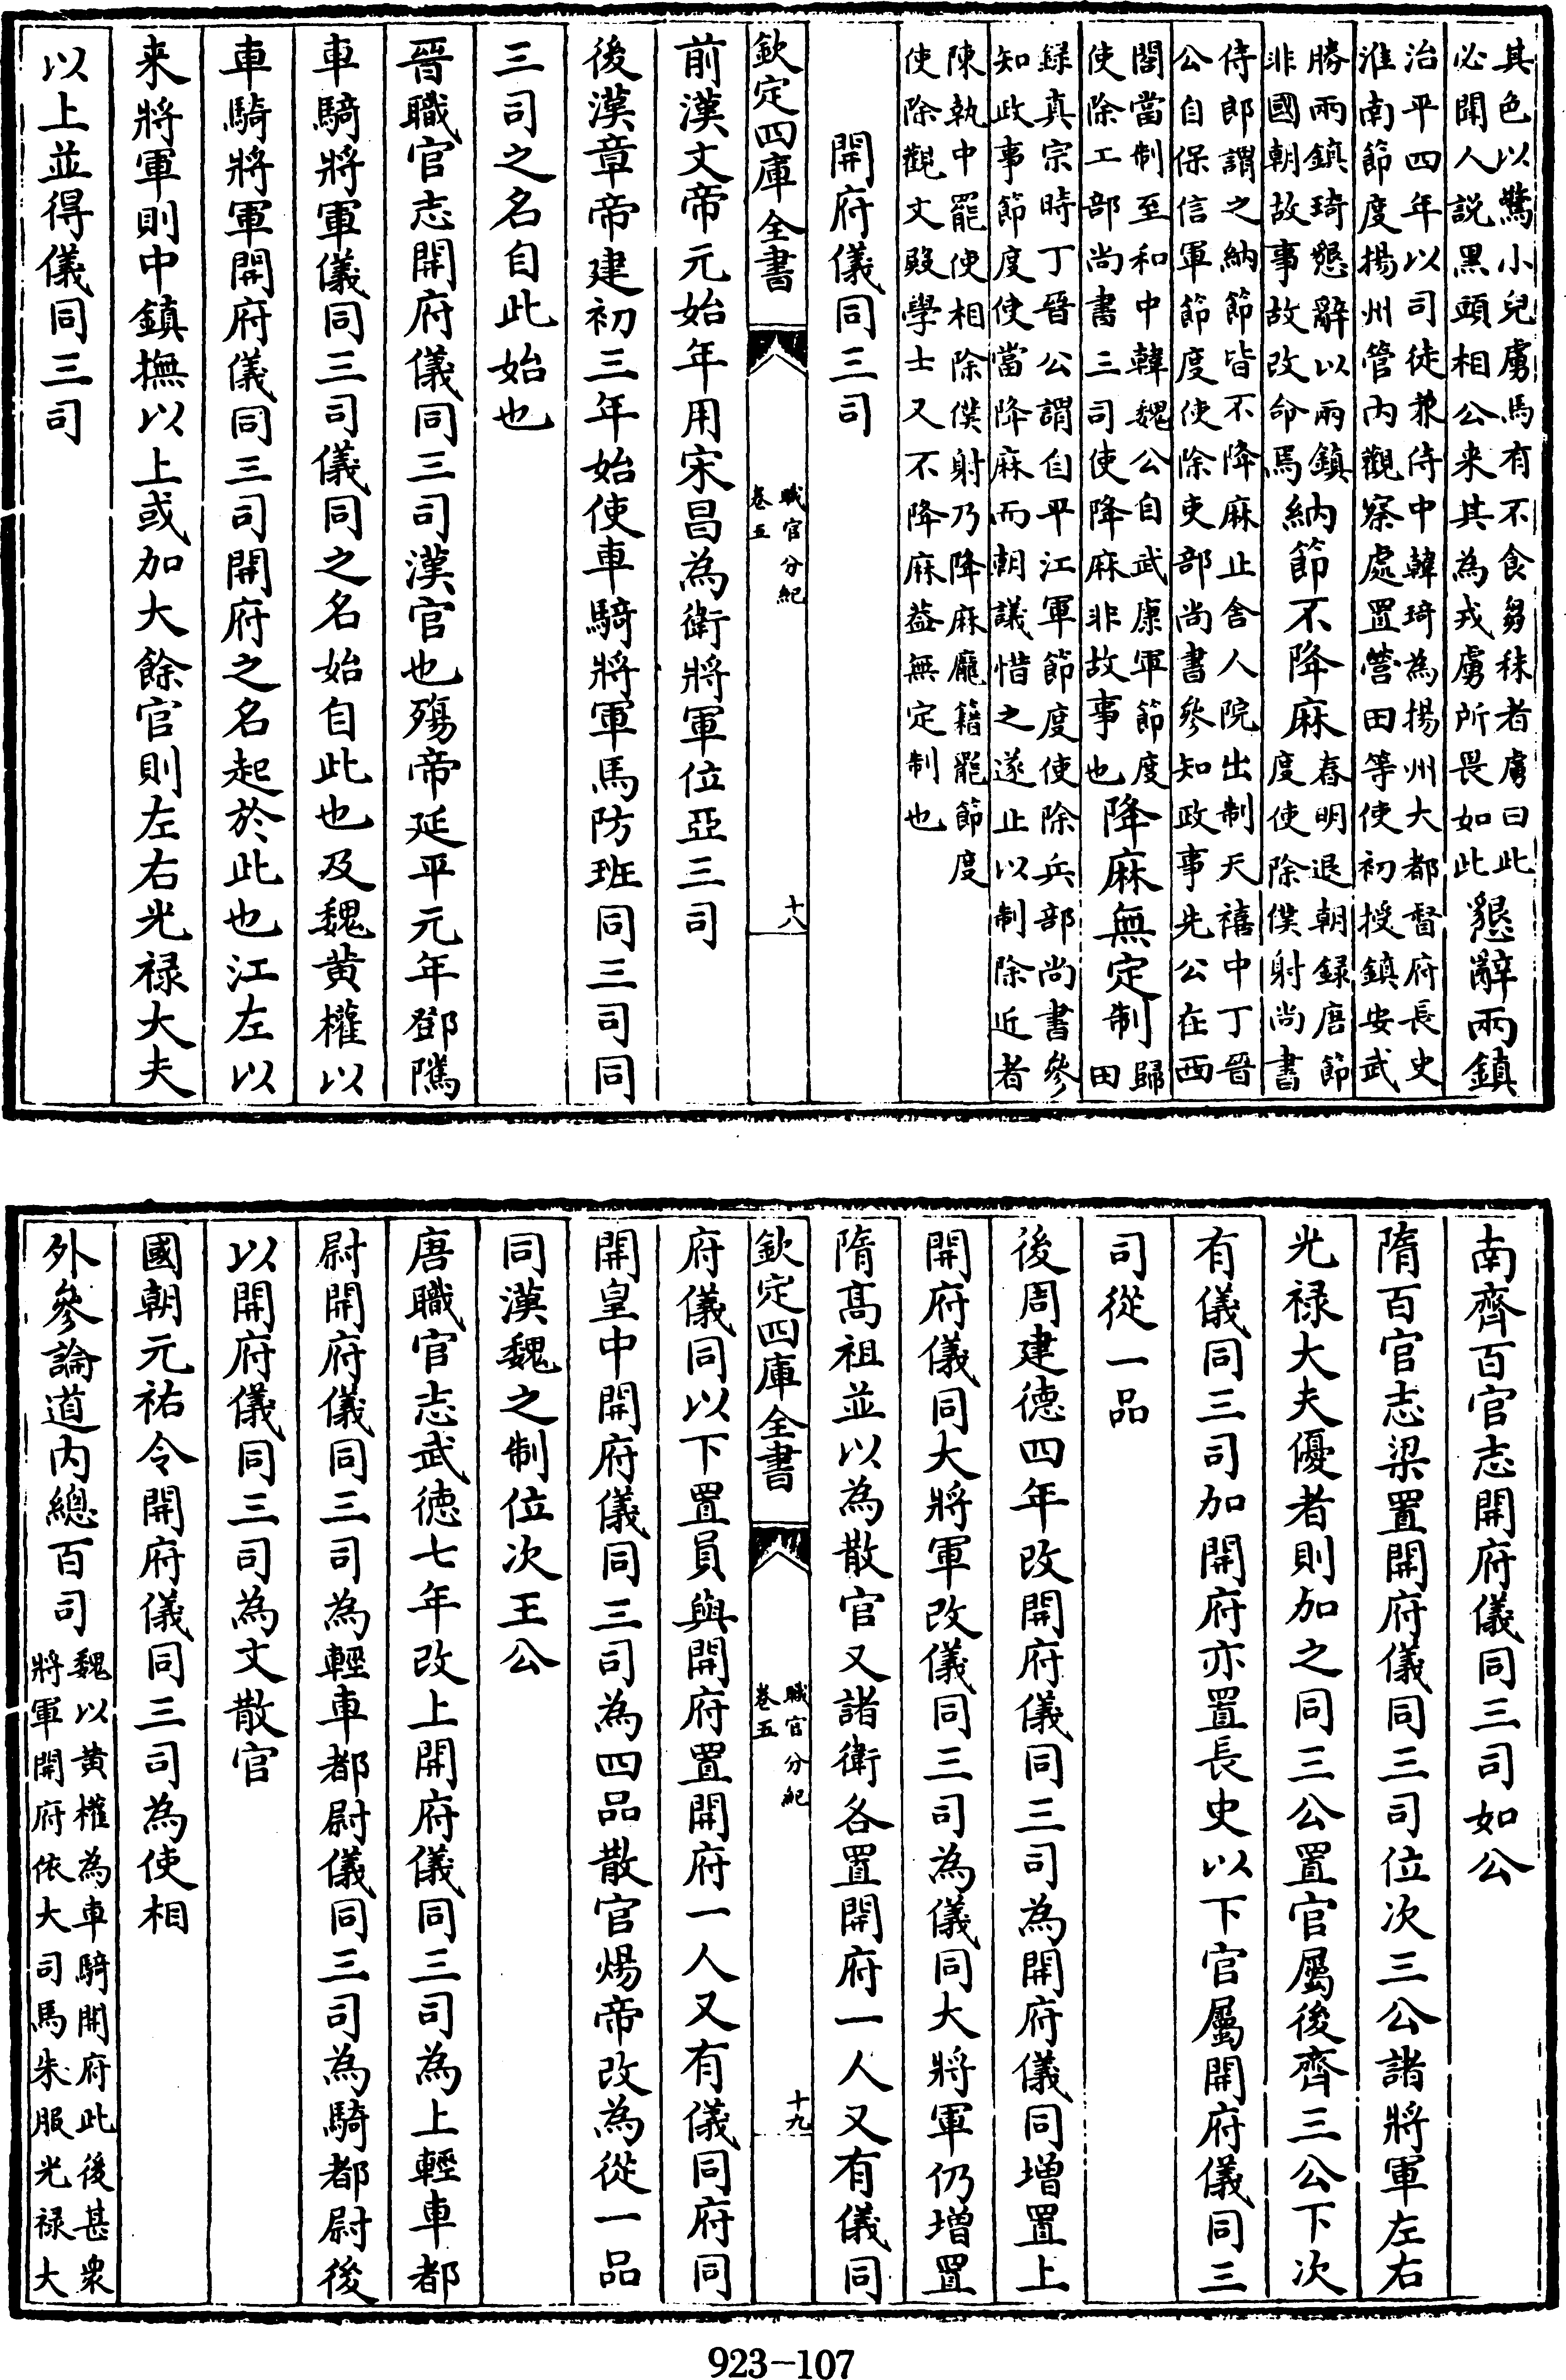 其色以驚小兒虜馬有不食芻秣者虜曰此
必聞人説黑頭相公来其為戎虜所畏如此
懇辭兩鎮
治平四年以司徒兼侍中韓琦為揚州大都督府長史
淮南節度揚州管内觀察處置營田等使初授鎮安武
勝兩鎮琦懇辭以兩鎮
非國朝故事故改命焉
納節不降麻
春明退朝録唐節
度使除僕射尚書
侍郎謂之納節皆不降麻止舍人院出制天禧中丁晉
公自保信軍節度使除吏部尚書參知政事先公在西
閤當制至和中韓魏公自武康軍節度
使除工部尚書三司使降麻非故事也
降麻無定制
歸
田
録真宗時丁晉公謂自平江軍節度使除兵部尚書參
知政事節度使當降麻而朝議惜之遂止以制除近者
陳執中罷使相除僕射乃降麻龐籍罷節度
使除觀文殿學士又不降麻益無定制也
開府儀同三司
欽定四庫全書
職官分紀
卷五
十八
前漢文帝元始年用宋昌為衛將軍位亞三司
後漢章帝建初三年始使車騎將軍馬防班同三司同
三司之名自此始也
晉職官志開府儀同三司漢官也殤帝延平元年鄧隲
車騎將軍儀同三司儀同之名始自此也及魏黄權以
車騎將軍開府儀同三司開府之名起於此也江左以
来將軍則中鎮撫以上或加大餘官則左右光禄大夫
以上並得儀同三司
南齊百官志開府儀同三司如公
隋百官志梁置開府儀同三司位次三公諸將軍左右
光禄大夫優者則加之同三公置官屬後齊三公下次
有儀同三司加開府亦置長史以下官屬開府儀同三
司從一品
後周建德四年改開府儀同三司為開府儀同增置上
開府儀同大將軍改儀同三司為儀同大將軍仍增置
隋髙祖並以為散官又諸衛各置開府一人又有儀同
欽定四庫全書
職官分紀
卷五
十九
府儀同以下置員與開府置開府一人又有儀同府同
開皇中開府儀同三司為四品散官煬帝改為從一品
同漢魏之制位次王公
唐職官志武徳七年改上開府儀同三司為上輕車都
尉開府儀同三司為輕車都尉儀同三司為騎都尉後
以開府儀同三司為文散官
國朝元祐令開府儀同三司為使相
外參論道内總百司
魏以黄權為車騎開府此後甚衆
將軍開府依大司馬朱服光禄大
923-107